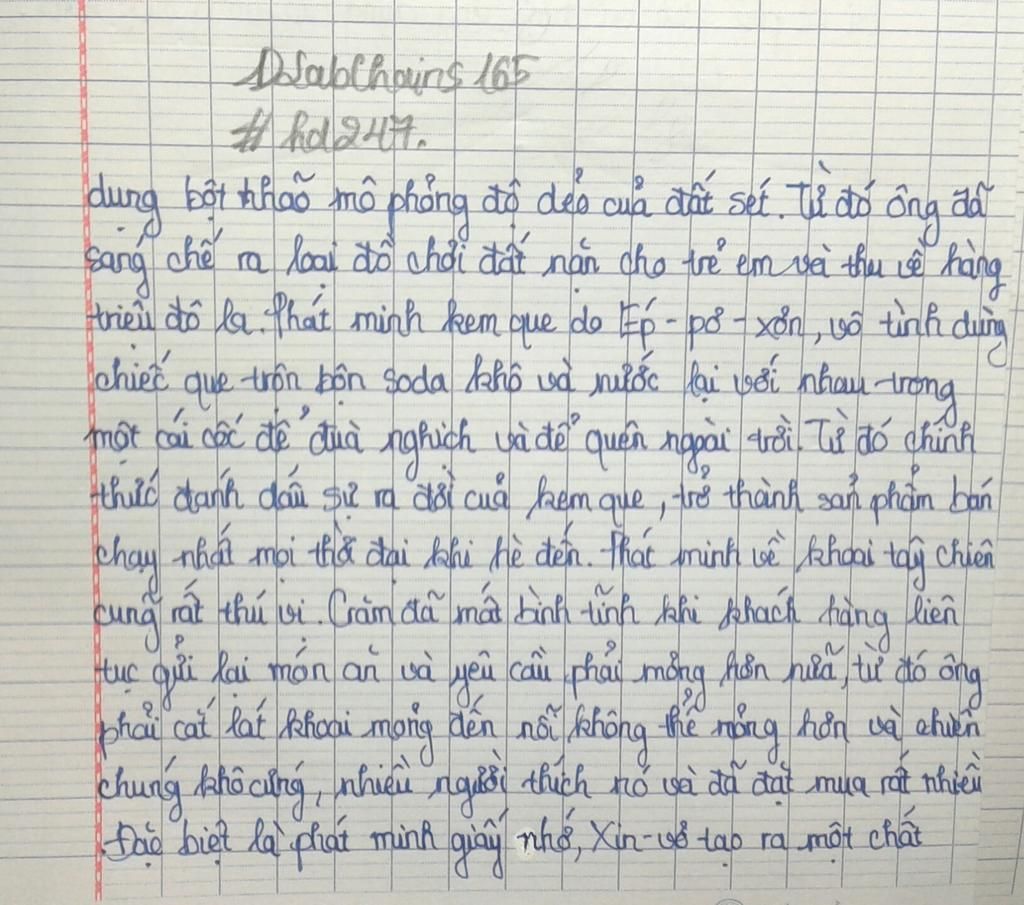 DsabChains 165
# hd247.
dụng bột nhão mô phỏng độ dẻo của đất sét. Từ đó ông đã
sáng chế ra loại đồ chơi đất nặn cho trẻ em và thu về hàng
triệu đô la. Phát minh kem que do Ép-pơ-xơn, vô tình dùng
chiếc que trộn bột soda khô và nước lại với nhau trong
một cái cốc để đùa nghịch và để quên ngoài trời. Từ đó chính
thức đánh dấu sự ra đời của kem que, trở thành sản phẩm bán
chạy nhất mọi thời đại khi hè đến. Phát minh về khoai tây chiên
cũng rất thú vị. Crăm đã mất bình tĩnh khi khách hàng liên
tục gửi lại món ăn và yêu cầu phải mỏng hơn nữa, từ đó ông
phải cắt lát khoai mỏng đến nỗi không thể mỏng hơn và chiên
chúng khô cứng, nhiều người thích nó và đã đặt mua rất nhiều
Đặc biệt là phát minh giấy nhớ, Xin-vơ tạo ra một chất